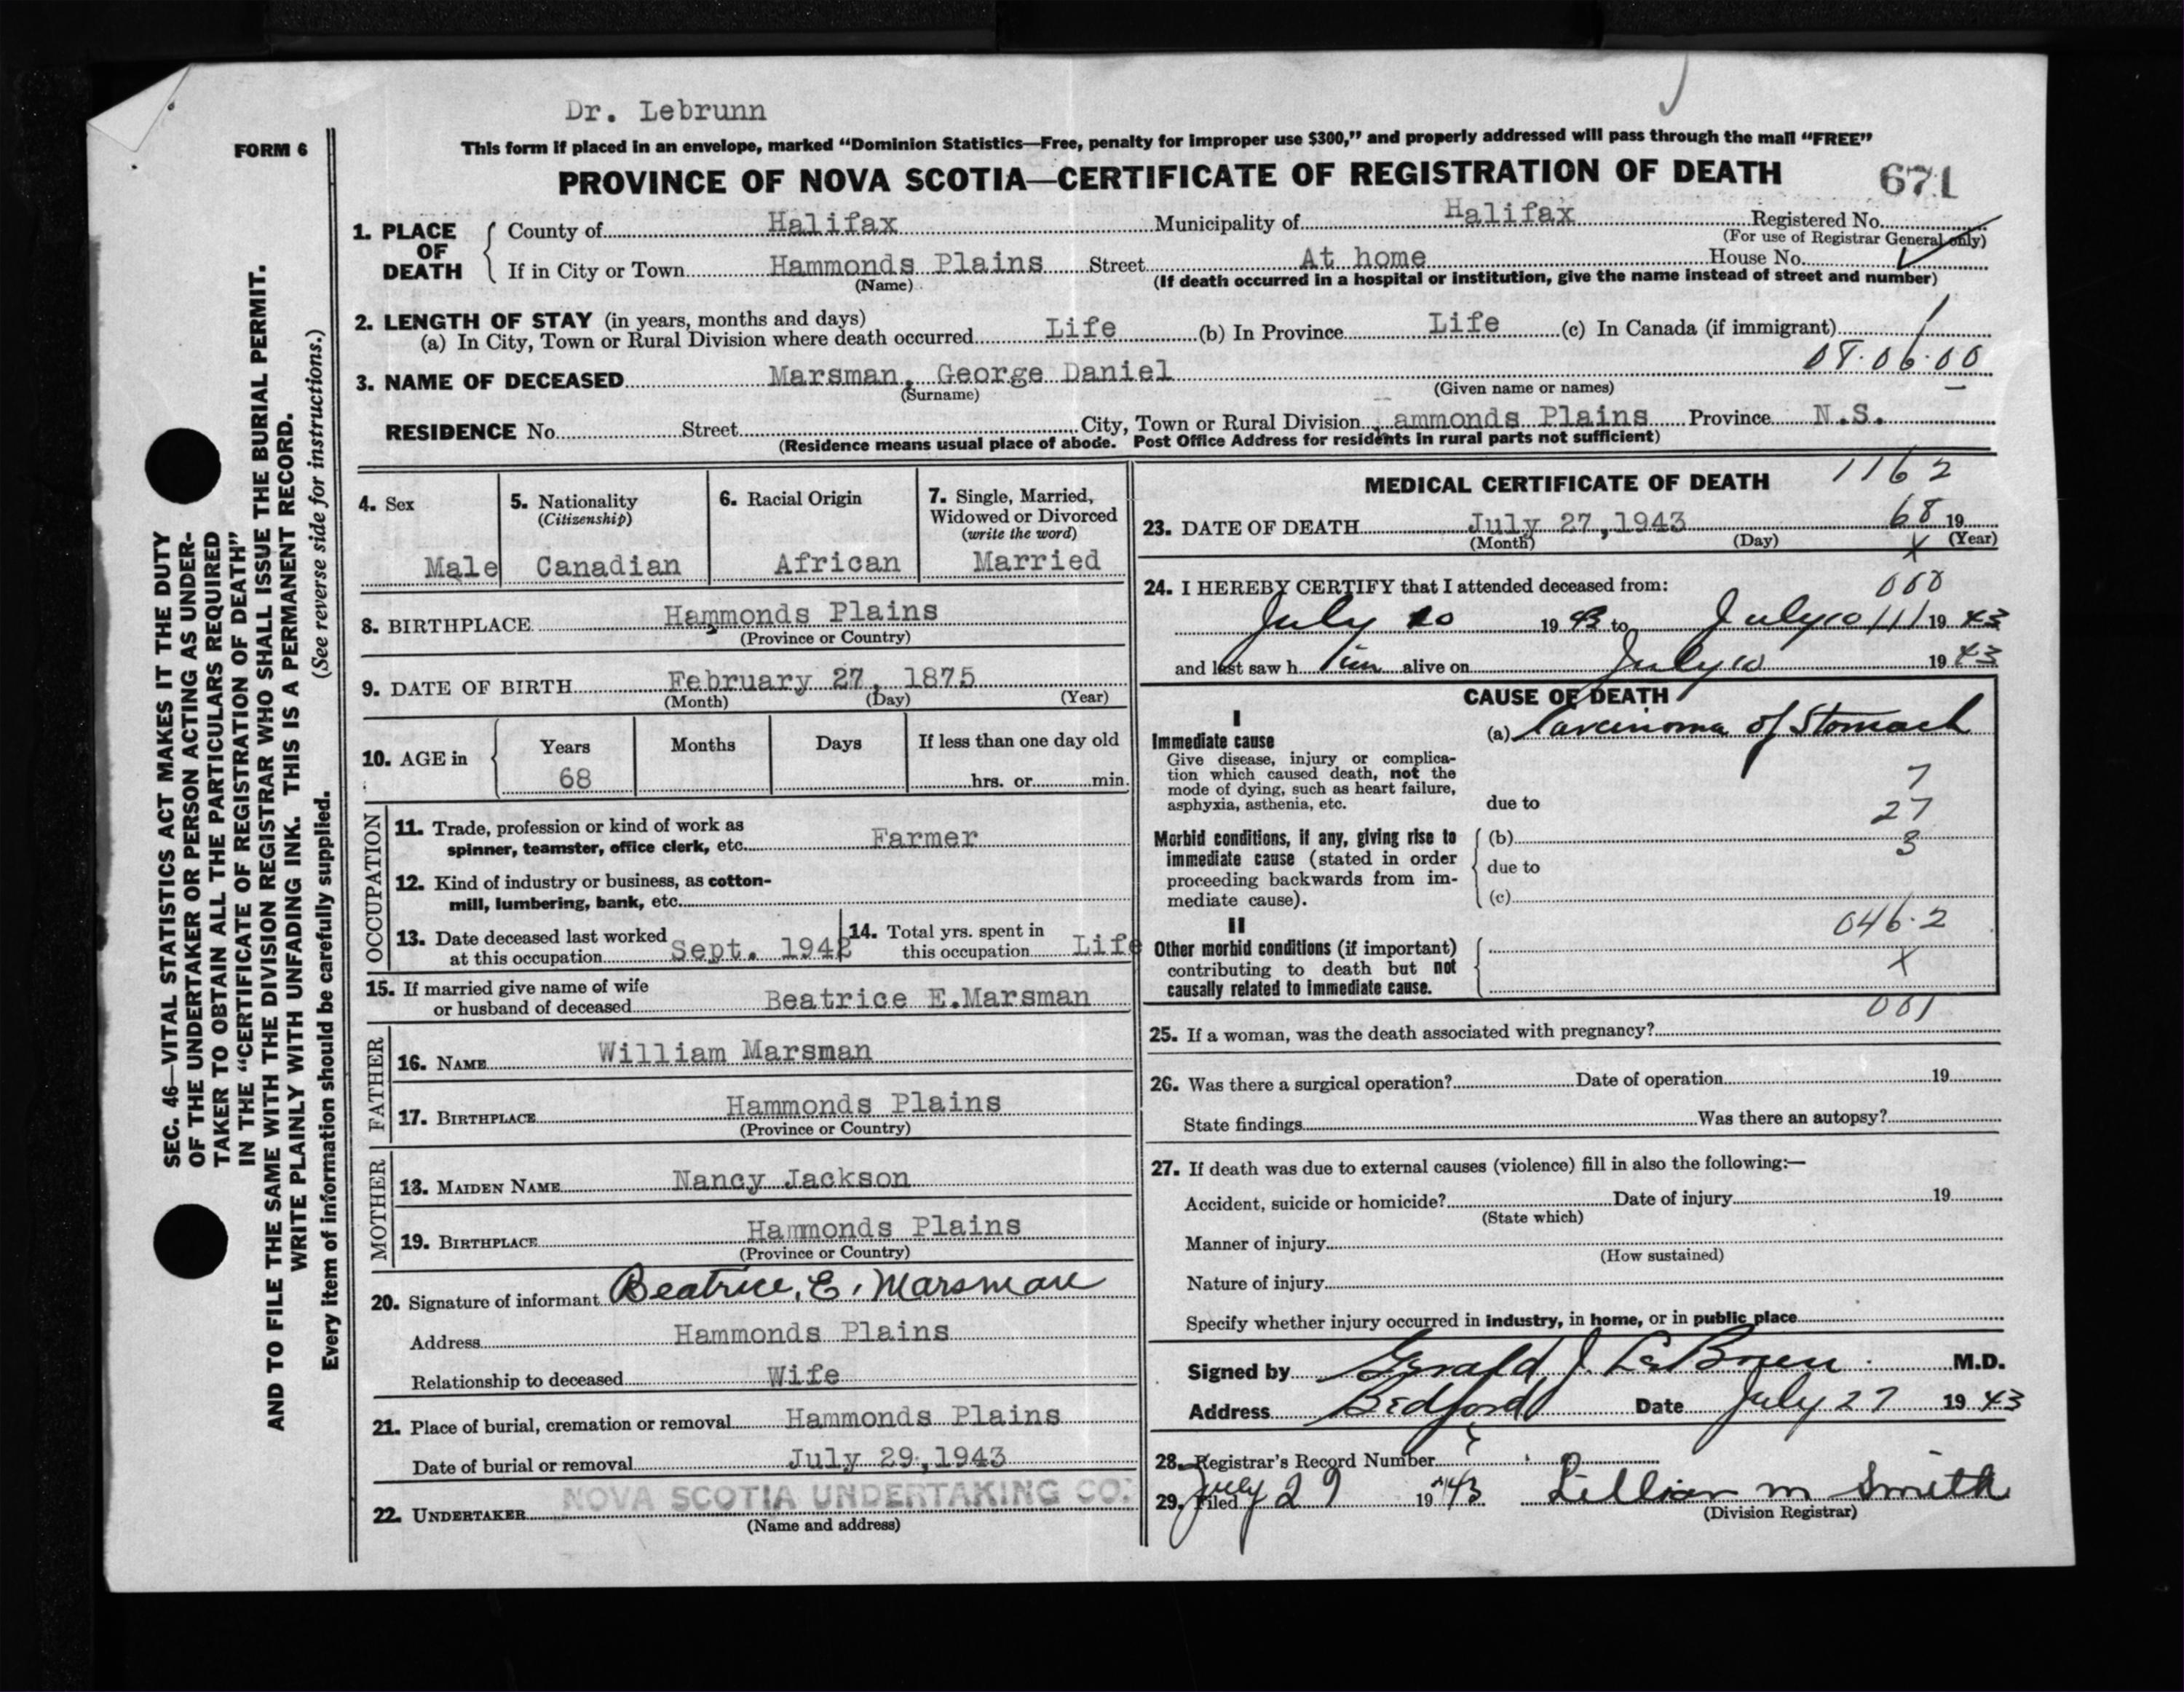 Dr. Lebrunn
FORM 6
This form if placed in an envelope, marked "Dominion Statistics—Free, penalty for improper use $300," and properly addressed will pass through the mail "FREE"
PROVINCE OF NOVA SCOTIA—CERTIFICATE OF REGISTRATION OF DEATH 671
1. PLACE OF DEATH
County of Halifax Municipality of Halifax Registered No.
(For use of Registrar General only)
If in City or Town Hammonds Plains Street At home House No.
(Name) (If death occurred in a hospital or institution, give the name instead of street and number)
2. LENGTH OF STAY (in years, months and days)
(a) In City, Town or Rural Division where death occurred Life (b) In Province Life (c) In Canada (if immigrant)
08.06.00
3. NAME OF DECEASED Marsman, George Daniel
(Surname) (Given name or names)
RESIDENCE No. Street City, Town or Rural Division ammonds Plains Province N.S.
(Residence means usual place of abode. Post Office Address for residents in rural parts not sufficient)
SEC. 46—VITAL STATISTICS ACT MAKES IT THE DUTY
OF THE UNDERTAKER OR PERSON ACTING AS UNDER-
TAKER TO OBTAIN ALL THE PARTICULARS REQUIRED
IN THE "CERTIFICATE OF REGISTRATION OF DEATH"
AND TO FILE THE SAME WITH THE DIVISION REGISTRAR WHO SHALL ISSUE THE BURIAL PERMIT.
WRITE PLAINLY WITH UNFADING INK. THIS IS A PERMANENT RECORD.
Every item of information should be carefully supplied. (See reverse side for instructions.)
4. Sex
Male
5. Nationality
(Citizenship)
Canadian
6. Racial Origin
African
7. Single, Married,
Widowed or Divorced
(write the word)
Married
8. BIRTHPLACE Hammonds Plains
(Province or Country)
9. DATE OF BIRTH February 27, 1875
(Month) (Day) (Year)
10. AGE in
Years Months Days If less than one day old
68 hrs. or min.
OCCUPATION
11. Trade, profession or kind of work as
spinner, teamster, office clerk, etc. Farmer
12. Kind of industry or business, as cotton-
mill, lumbering, bank, etc.
13. Date deceased last worked
at this occupation Sept. 1942
14. Total yrs. spent in
this occupation Life
15. If married give name of wife
or husband of deceased Beatrice E.Marsman
FATHER
16. NAME William Marsman
17. BIRTHPLACE Hammonds Plains
(Province or Country)
MOTHER
18. MAIDEN NAME Nancy Jackson
19. BIRTHPLACE Hammonds Plains
(Province or Country)
20. Signature of informant Beatrice. E. Marsman
Address Hammonds Plains
Relationship to deceased Wife
21. Place of burial, cremation or removal Hammonds Plains
Date of burial or removal July 29,1943
22. UNDERTAKER NOVA SCOTIA UNDERTAKING CO.
(Name and address)
MEDICAL CERTIFICATE OF DEATH 1162
23. DATE OF DEATH July 27,1943 68 19
(Month) (Day) X (Year)
24. I HEREBY CERTIFY that I attended deceased from: 000
July 10 19 43 to July 10 111 19 43
and last saw h im alive on July 10 19 43
CAUSE OF DEATH
I
Immediate cause
Give disease, injury or complica-
tion which caused death, not the
mode of dying, such as heart failure,
asphyxia, asthenia, etc.
(a) Carcinoma of Stomach
7
due to 27
Morbid conditions, if any, giving rise to
immediate cause (stated in order
proceeding backwards from im-
mediate cause).
(b) 3
due to
(c)
II 046.2
Other morbid conditions (if important)
contributing to death but not
causally related to immediate cause.
X
001
25. If a woman, was the death associated with pregnancy?
26. Was there a surgical operation? Date of operation 19
State findings Was there an autopsy?
27. If death was due to external causes (violence) fill in also the following:—
Accident, suicide or homicide? Date of injury 19
(State which)
Manner of injury
(How sustained)
Nature of injury
Specify whether injury occurred in industry, in home, or in public place
Signed by Gerald J. LeBrun. M.D.
Address Bedford Date July 27 19 43
28. Registrar's Record Number
29. Filed July 29 19 43 Lillian M Smith
(Division Registrar)